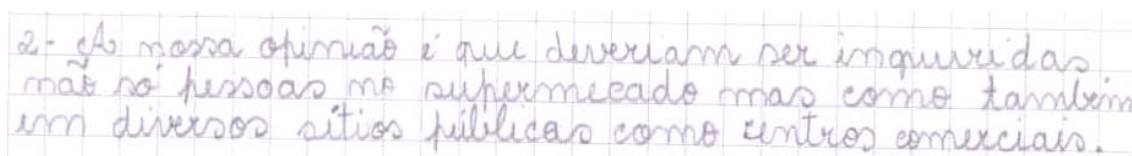 2- A nossa opinião é que deveriam ser inquiridas
não só pessoas no supermecado mas como também
em diversos sítios públicos como centros comerciais.